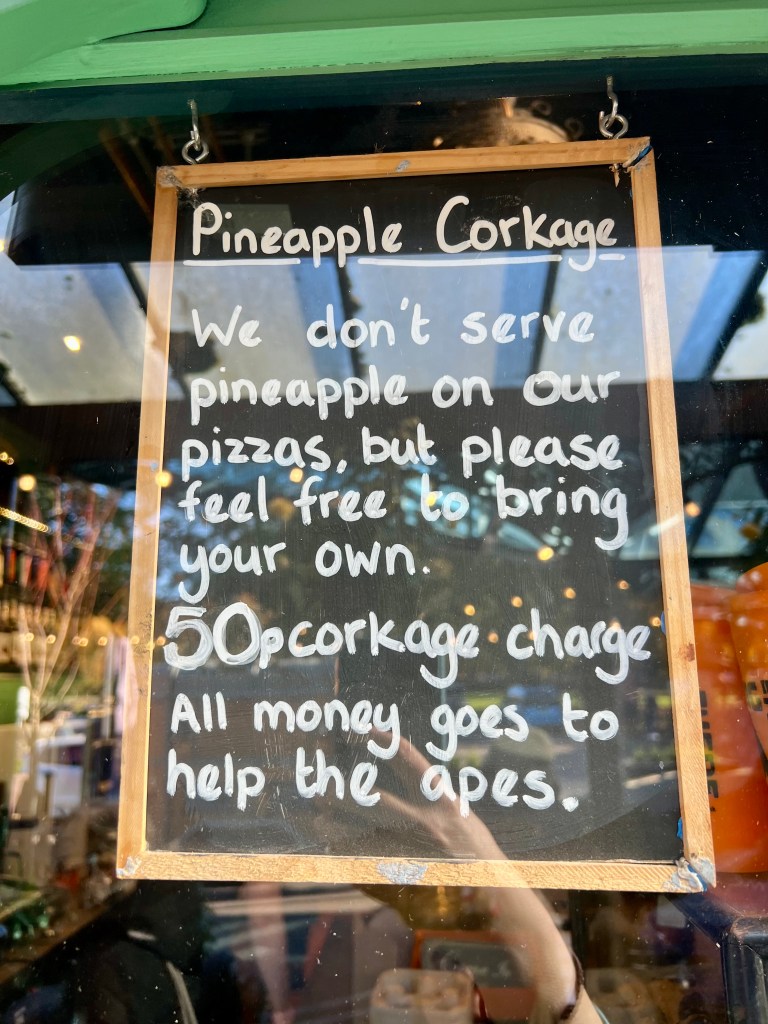 Pineapple Corkage
We don't serve
pineapple on our
pizzas, but please
feel free to bring
your own.
50p corkage charge
All money goes to
help the apes.